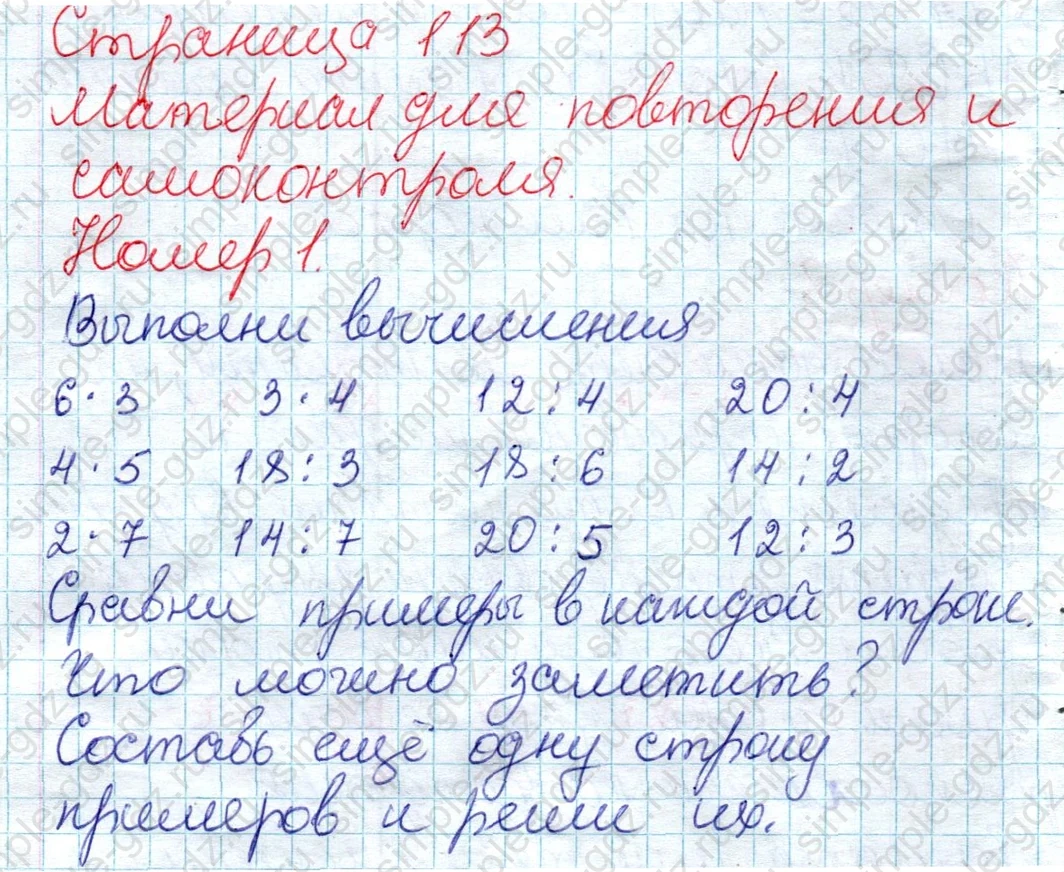 Страница 113
Материал для повторения и
самоконтроля.
Номер 1.
Выполни вычисления
6 · 3 3 · 4 12 : 4 20 : 4
4 · 5 18 : 3 18 : 6 14 : 2
2 · 7 14 : 7 20 : 5 12 : 3
Сравни примеры в каждой строке.
Что можно заметить?
Составь ещё одну строку
примеров и реши их.
simple-gdz.ru